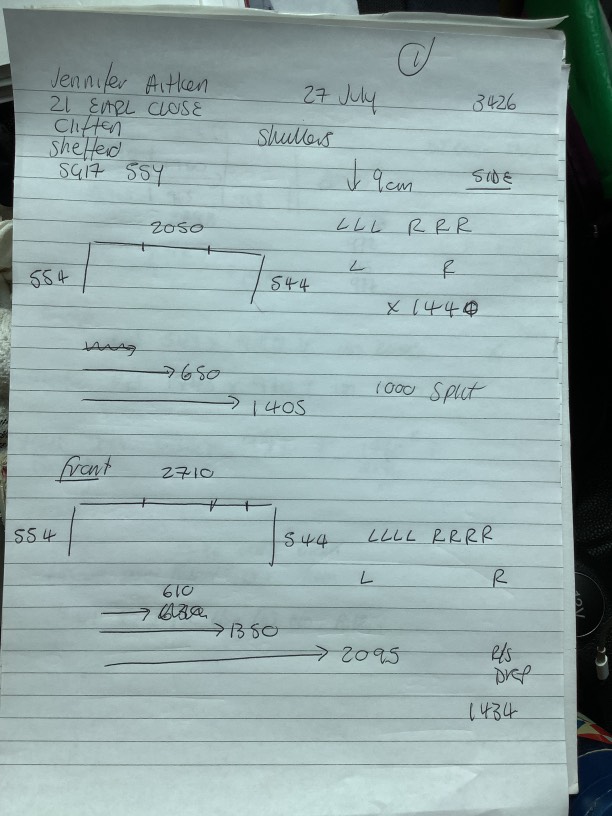 1
Jennifer Aitken 27 July 3426
21 EARL CLOSE
Cliften Shutters
Shefferd 9cm SIDE
SG17 5SY
2050 LLL RRR
554 544 L R
x 1440
650
1405 1000 Split
Front 2710
554 544 LLLL RRRR
L R
610
1350
2095 R/S
DROP
1434
12V